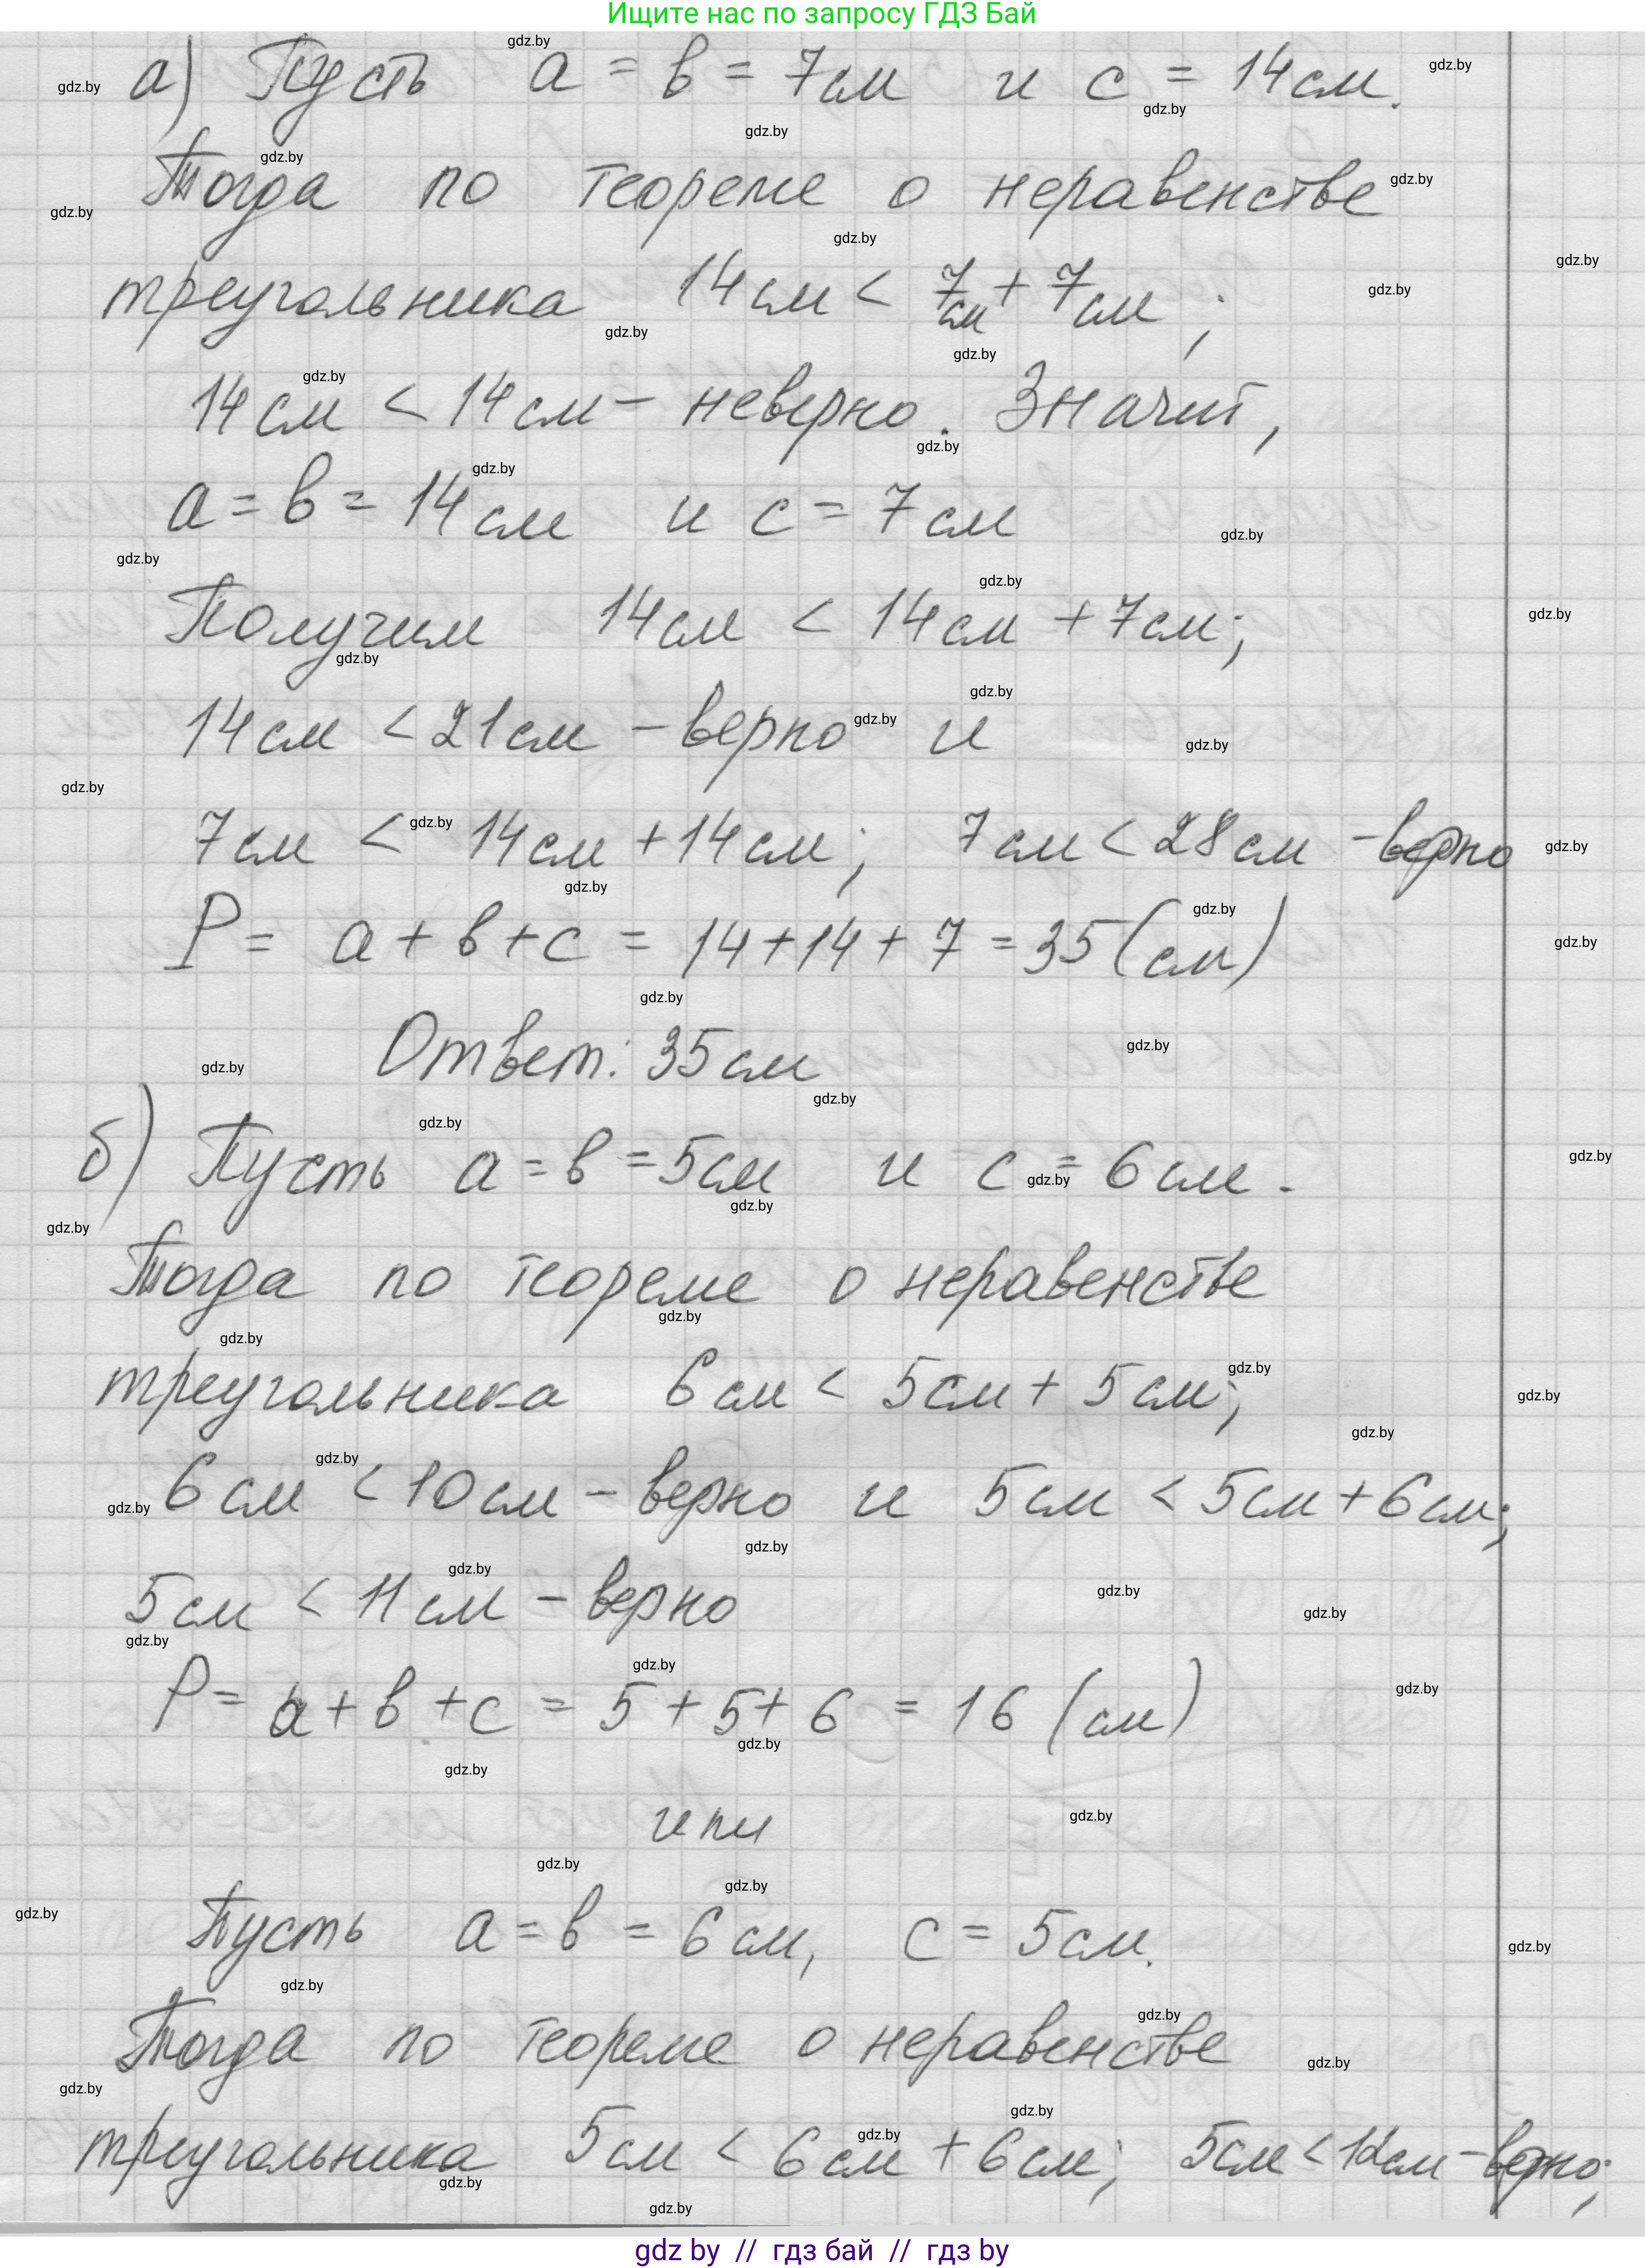 Ищите нас по запросу ГДЗ Бай
а) Пусть a = b = 7см и c = 14см.
Тогда по теореме о неравенстве
треугольника 14см < 7см + 7см;
14см < 14см - неверно. Значит,
a = b = 14см и c = 7см
Получим 14см < 14см + 7см;
14см < 21см - верно и
7см < 14см + 14см; 7см < 28см - верно
P = a + b + c = 14 + 14 + 7 = 35 (см)
Ответ: 35см
б) Пусть a = b = 5см и c = 6см.
Тогда по теореме о неравенстве
треугольника 6см < 5см + 5см;
6см < 10см - верно и 5см < 5см + 6см;
5см < 11см - верно
P = a + b + c = 5 + 5 + 6 = 16 (см)
или
Пусть a = b = 6см, c = 5см.
Тогда по теореме о неравенстве
треугольника 5см < 6см + 6см; 5см < 12см - верно;
gdz by // гдз бай // гдз by